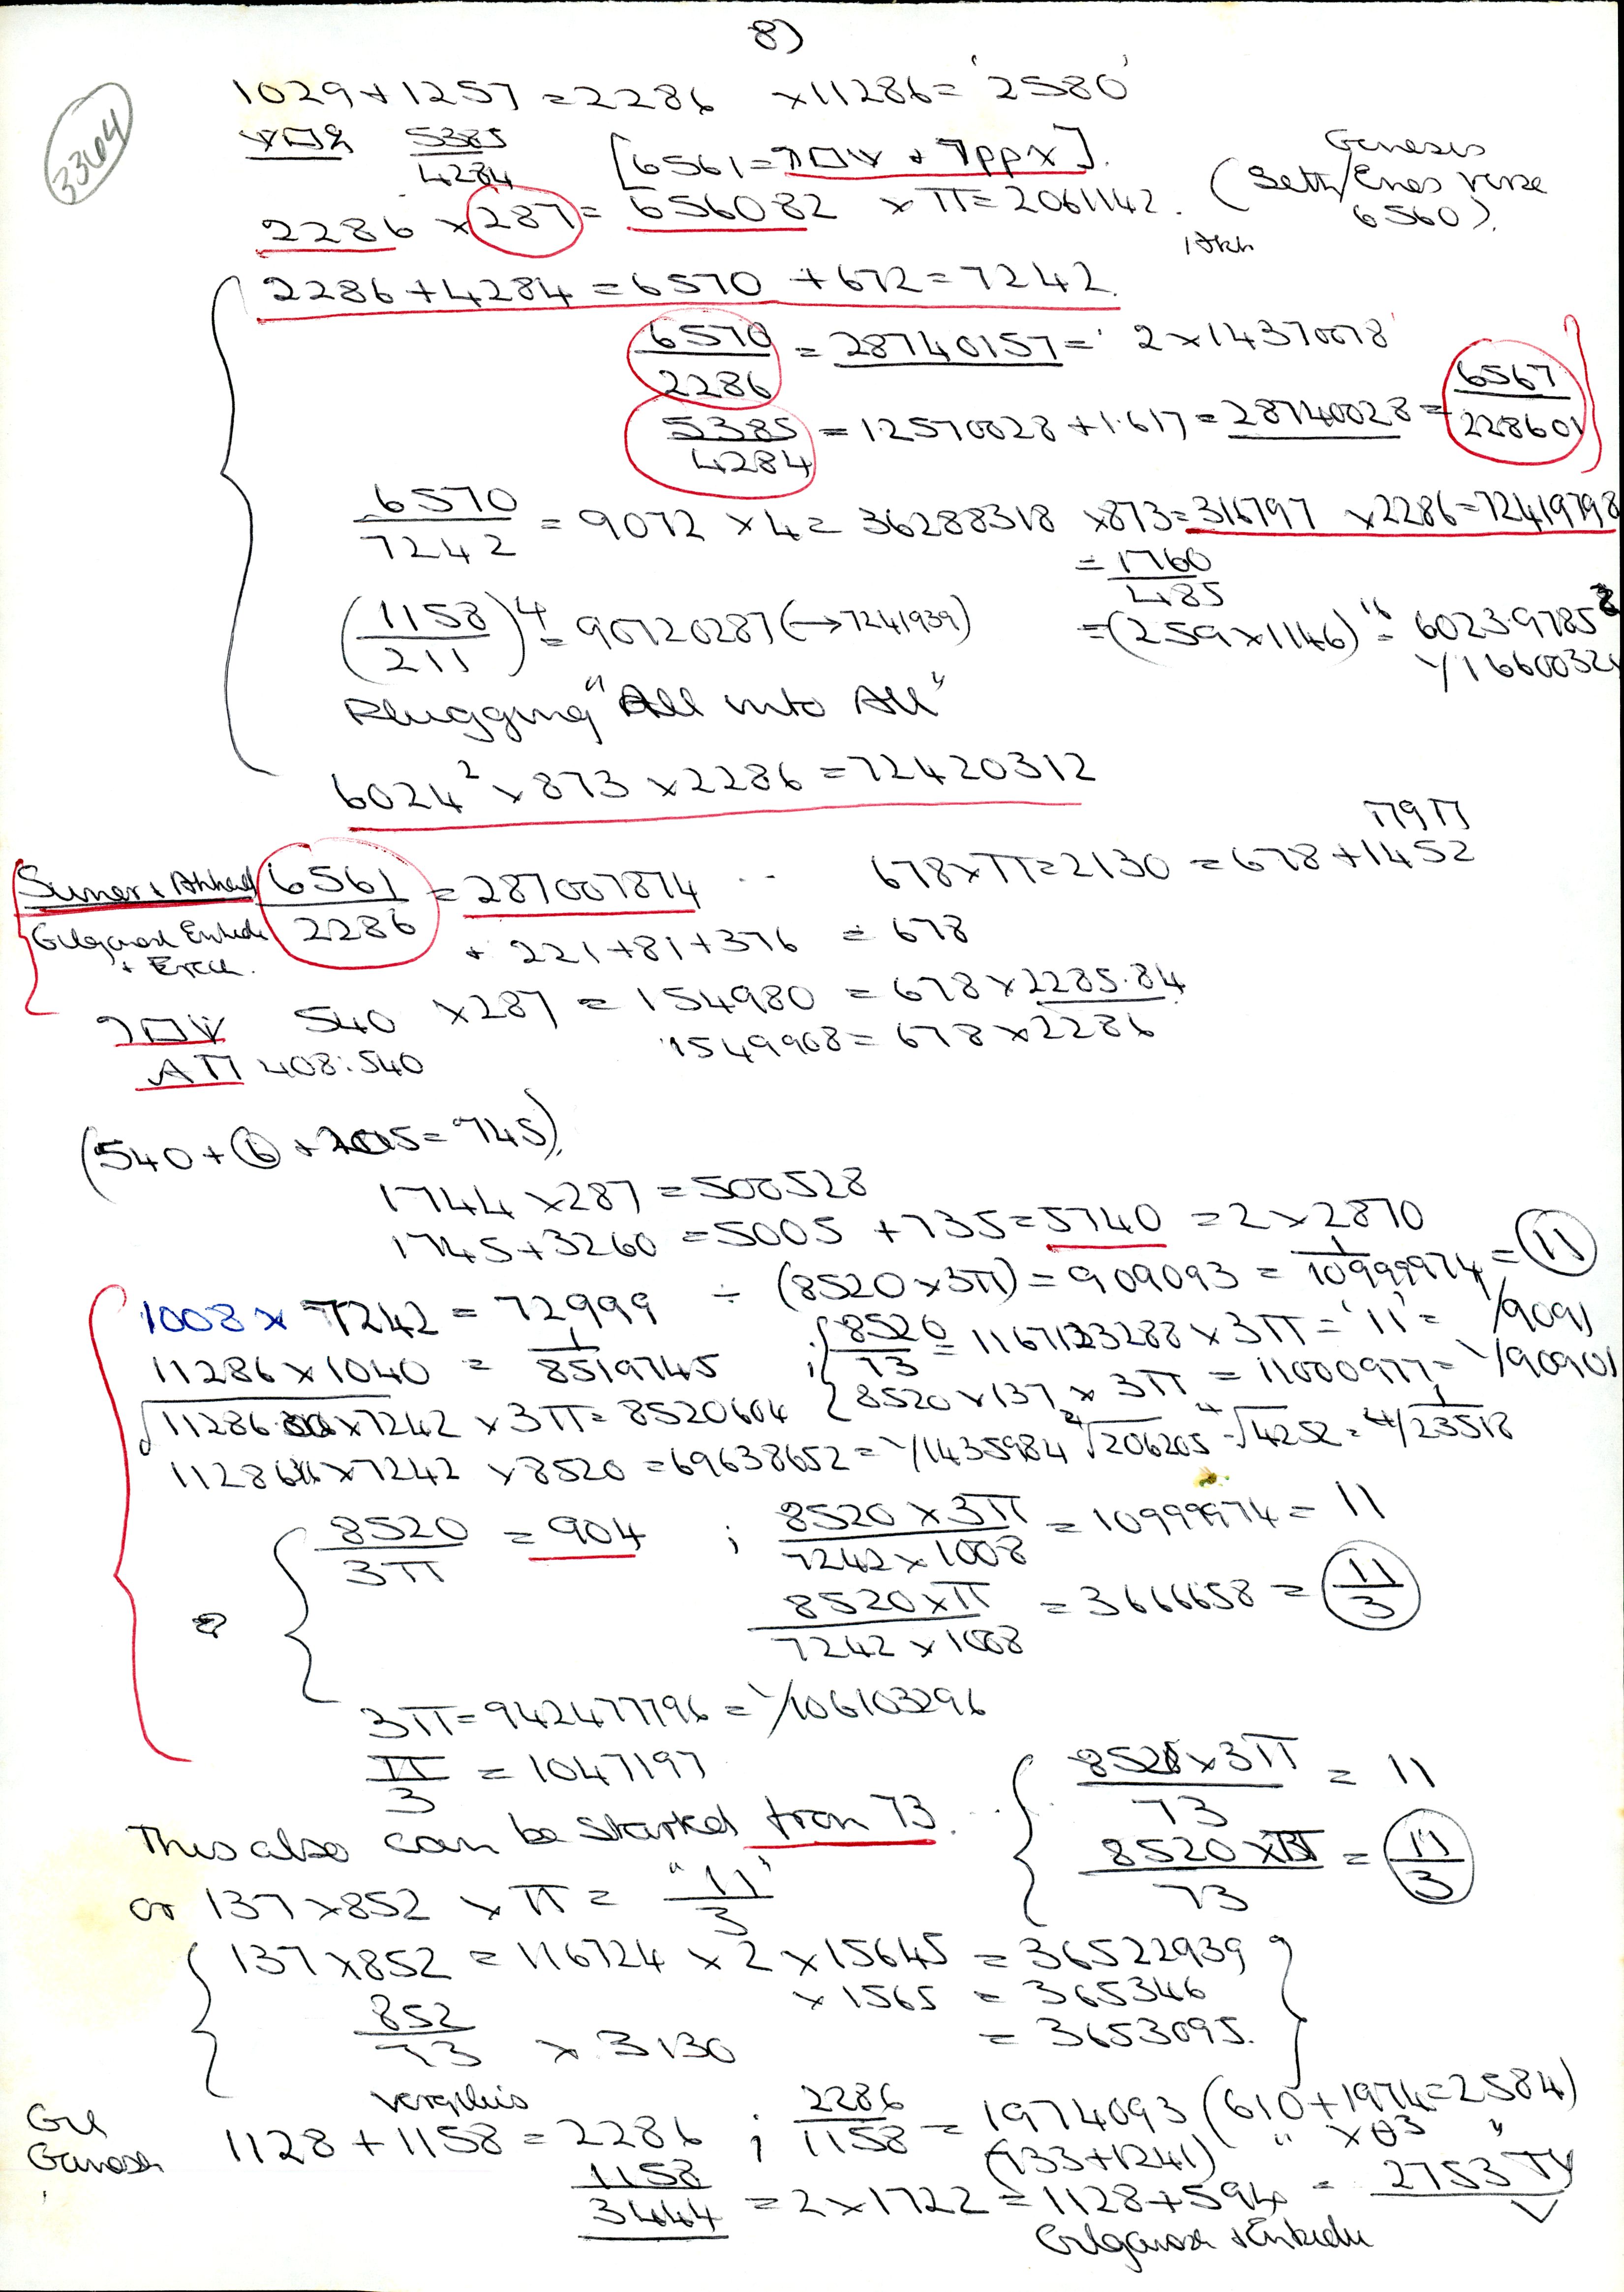 8)
33604
1029 + 1257 = 2286 × 11286 = '2580'
5385/4284 [6561 = + ].
Genesis
(Seth/Enos verse 6560).
2286 × 287 = 656082 × π = 2061142.
2286 + 4284 = 6570 + 672 = 7242.
6570/2286 = 28740157 = '2 × 14370078'
5385/4284 = 12570028 + 1.617 = 28740028 = 6567/228601
6570/7242 = 9072 × 4 = 36288318 × 873 = 316797 × 2286 = 72419798
= 1760/485
(1158/211)⁴ = 90720287 (→ 7241939) = (259 × 1146)" = 6023.9785²
1/16600321
Plugging "All into All"
6024² × 873 × 2286 = 72420312
Sumer + Akkad 6561/2286 = 287007874 .. 678 × π = 2130 = 678 + 1452
Gilgamesh Enkidu + Erech.
+ 221 + 81 + 376 = 678
540 × 287 = 154980 = 678 × 2285.84
'1549908 = 678 × 2286
408 : 540
(540 + 6 + 205 = 745).
1744 × 287 = 500528
1745 + 3260 = 5005 + 735 = 5740 = 2 × 2870
1008 × 7242 = 72999 ÷ (8520 × 3π) = 909093 = 1/10999974 = 11
11286 × 1040 = 1/8519745 ; 8520/73 = 1167123288 × 3π = '11' = 1/9091
8520 × 137 × 3π = 11000977 = 1/90901
√11286 × 7242 × 3π = 8520604
11286 × 7242 × 8520 = 69638652 = 1/1435984 ⁴√206205 ⁴√4252 = 1/23518
8520/3π = 904 ; 8520 × 3π/7242 × 1008 = 10999974 = 11
8520 × π/7242 × 1008 = 3666658 = 11/3
3π = 942477796 = 1/106103296
π/3 = 1047197
This also can be started from 73. 8520 × 3π/73 = 11
or 137 × 852 × π = "11"/3
8520 × π/73 = 11/3
137 × 852 = 116724 × 2 × 15645 = 36522939
× 1565 = 365346
852/73 × 3130 = 3653095.
Gil Gamesh
1128 + 1158 = 2286 ; 2286/1158 = 1974093 (610 + 1974 = 2584)
(733 + 1241)
1158
3444 = 2 × 1722 = 1128 + 594 = 2753
Gilgamesh + Enkidu